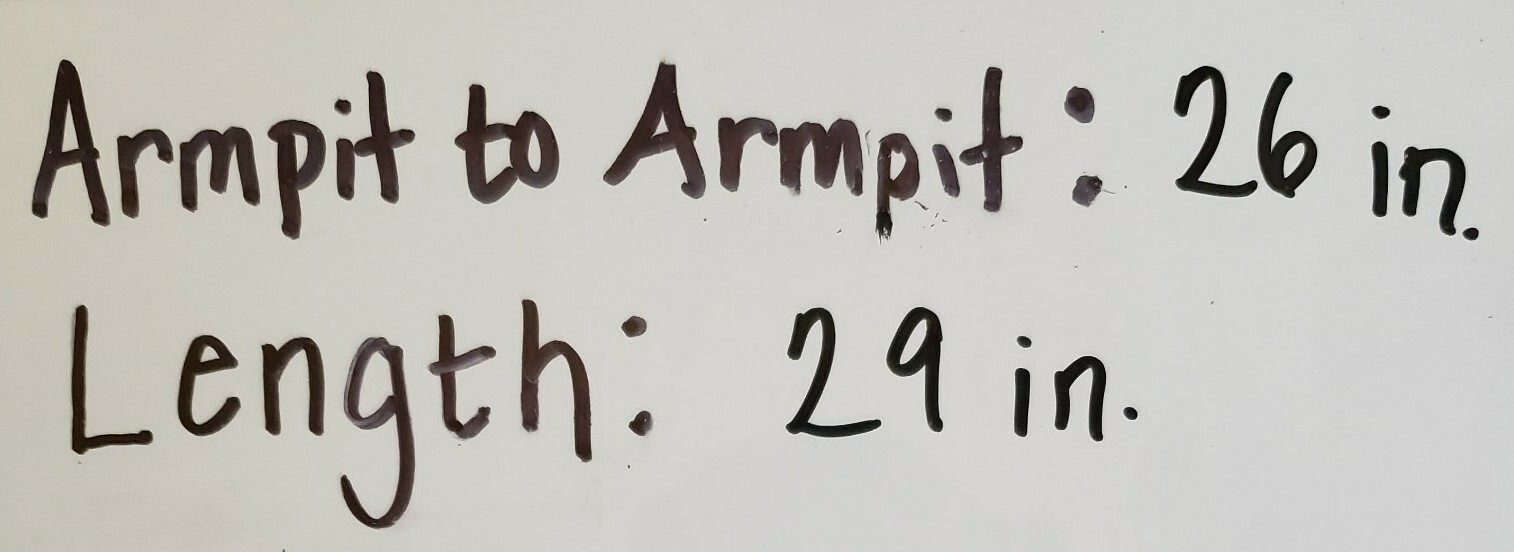 Armpit to Armpit: 26 in.
Length: 29 in.